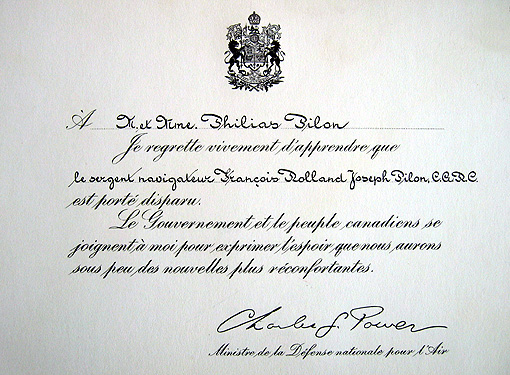 À M. et Mme. Philias Pilon
Je regrette vivement d'apprendre que
le sergent navigateur François Rolland Joseph Pilon, C.A.R.C.
est porté disparu.
Le Gouvernement et le peuple canadiens se
joignent à moi pour exprimer l'espoir que nous aurons
sous peu des nouvelles plus réconfortantes.
Charles G. Power
Ministre de la Défense nationale pour l'Air